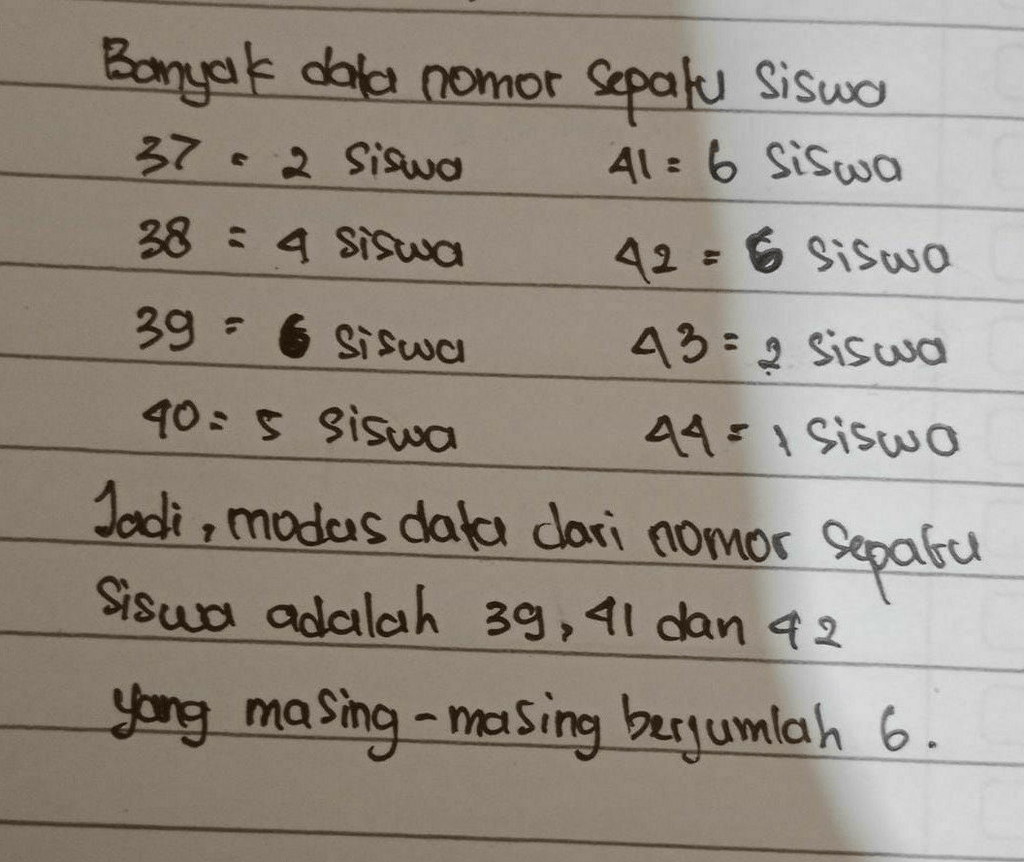 Banyak data nomor sepatu siswa
37 = 2 siswa 41 = 6 siswa
38 = 4 siswa 42 = 6 siswa
39 = 6 siswa 43 = 2 siswa
40 = 5 siswa 44 = 1 siswa
Jadi, modus data dari nomor sepatu
siswa adalah 39, 41 dan 42
yang masing-masing berjumlah 6.